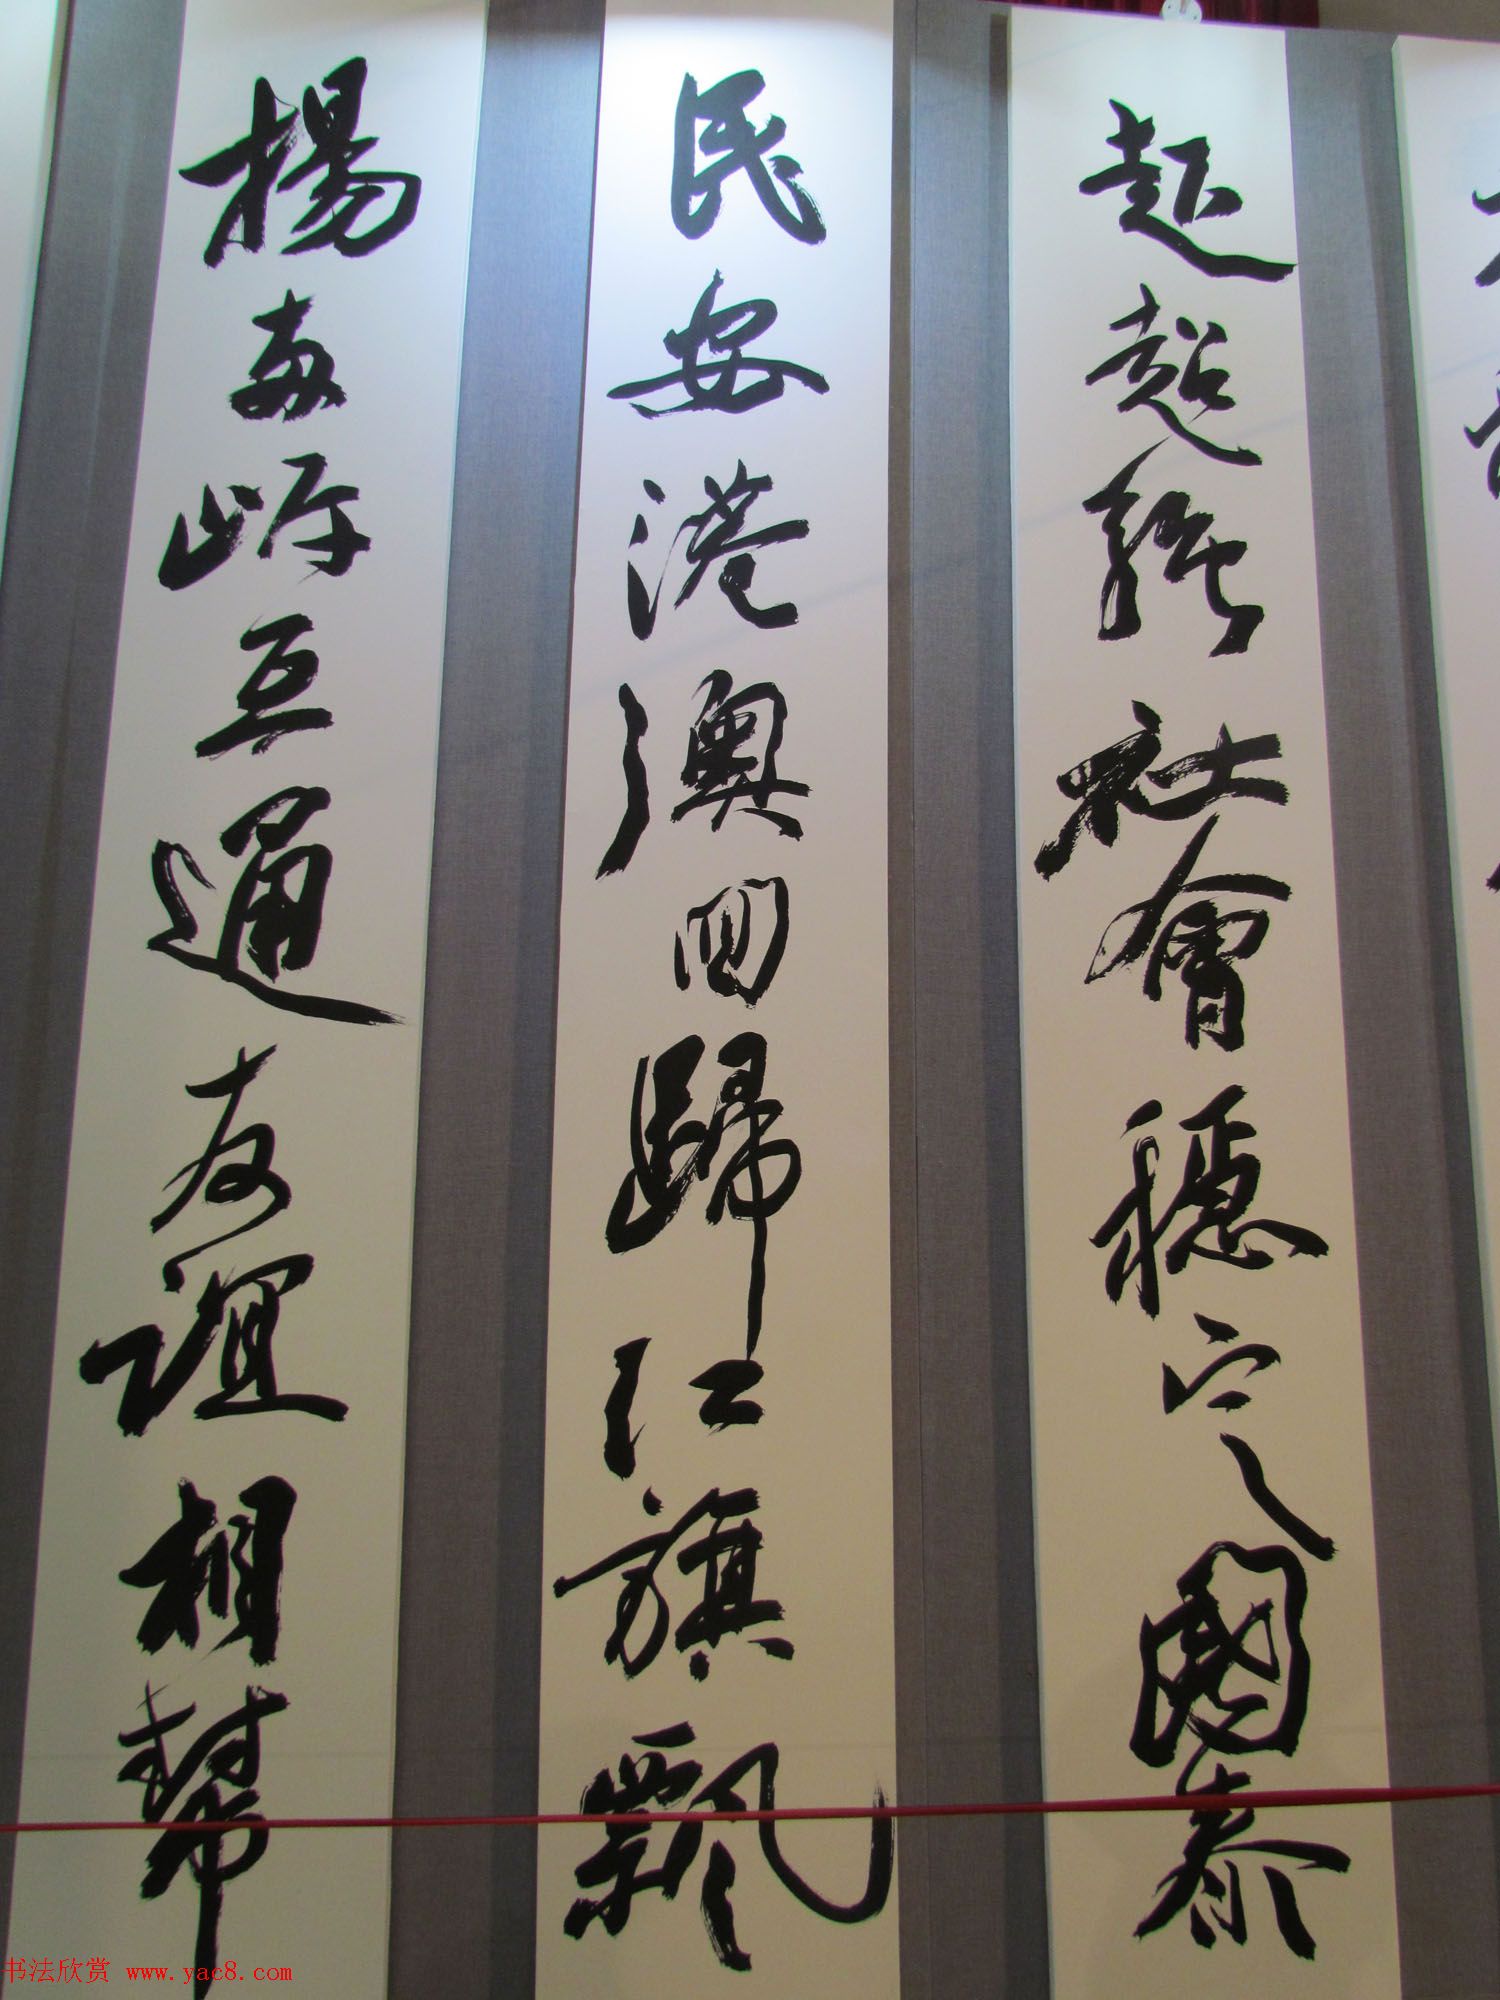 起超强社會穩定國泰
民安港澳回歸紅旗飄
揚兩岸互通友誼相幫
书法欣赏 www.yac8.com